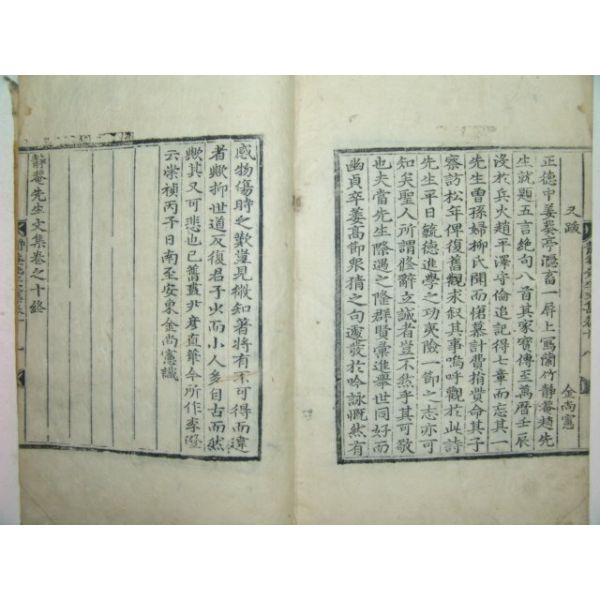 又跋
金尚憲
正德中姜葵亭濕畜一屏上寫蘭竹靜菴趙先
生就題五言絶句八首其家寶傳至萬曆壬辰
浸於兵火趙平澤守倫追記得七章而忘其一
先生曾孫婦柳氏聞而慕計費捐貲命其子
察訪松年俾復舊觀求叙其事嗚呼觀於此詩
先生平日毓德進學之功夷險一節之志亦可
知矣聖人所謂修辭立誠者豈不然乎其可敬
也夫當先生際遇之隆群賢彙進擧世同好而
幽貞卒萎高節衆猜之句邃發於吟詠慨然有
感物傷時之歎豈見微知著將有不可得而違
者歟抑世道反復君子少而小人多自古而然
歟其又可悲也已舊並非彦直筆今所作李澄
云崇禎丙子日南至安東金尚憲識
靜菴先生文集卷之十終